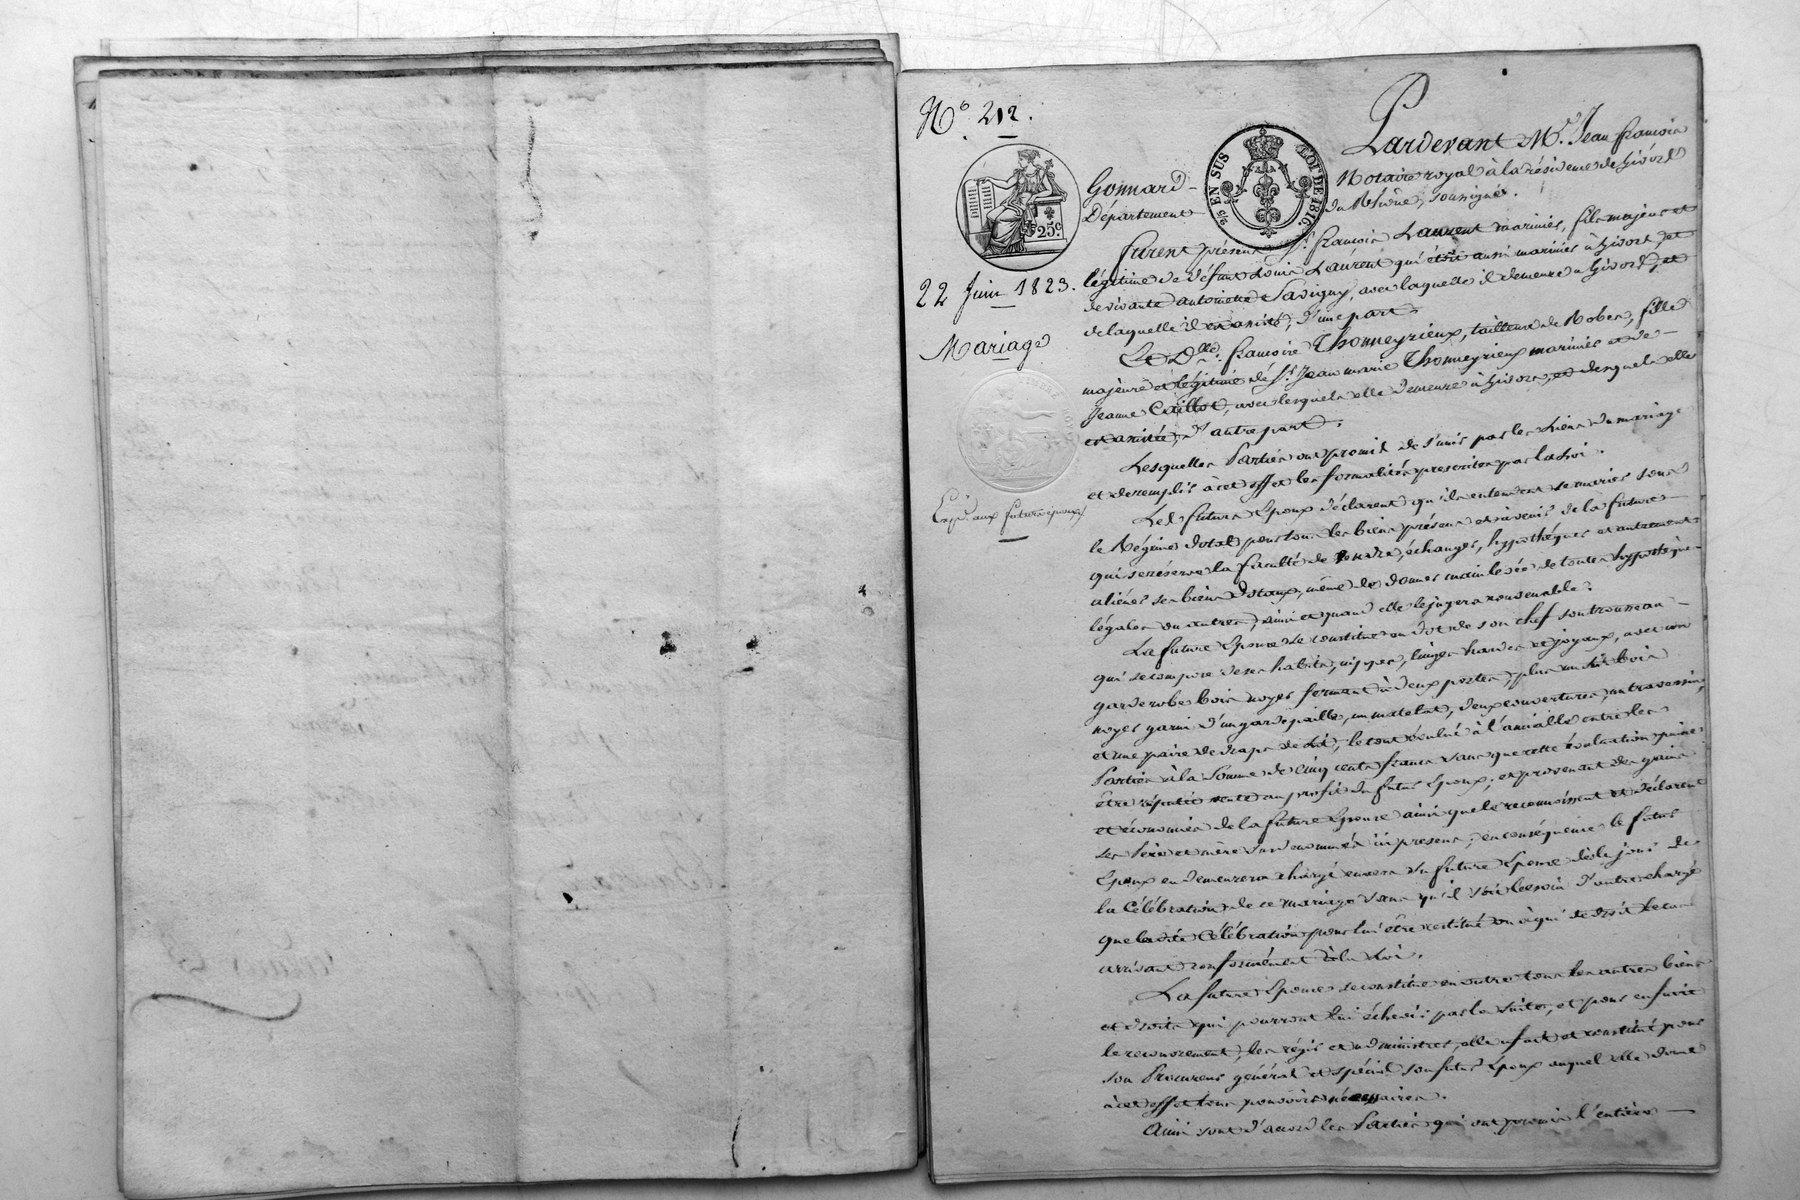 N.º 212.
Pardevant M.e Jean françois
Gonnard Notaire royal à la résidence de Givors
Département du Rhône, soussigné.
5/c EN SUS LOI DE 1816.
25.c
22 Juin 1823.
Mariage
Exp.on aux futurs époux
furent présens S.r françois Laurent marinier, fils majeur et
légitime de défunt Louis Laurent qui étoit aussi marinier à Givors, et
de vivante antoinette Savigny, avec laquelle il demeure à Givors, et
de laquelle il est assisté, d'une part.
Et D.lle françoise Thomeyrieux, tailleuse de Robes, fille
majeure et légitime de S.r Jean marie Thomeyrieux marinier et de
Jeanne avec lesquels elle demeure à Givors, et desquels elle
est assistée, d'autre part.
Lesquelles Parties ont promis de s'unir par les Liens du mariage
et de remplir à cet effet les formalités prescrites par la Loi.
Les futurs Epoux déclarent qu'ils entendent se marier sous
le Régime dotal pour tous les biens présens et à venir de la future
qui se réserve la faculté de vendre, échanger, hypothéquer et autrement
aliéner ses biens dotaux, même de donner main levée de toutes hypothèques
légales ou autres, ainsi et quand elle le jugera convenable.
La future Epouse se constitue en dot de son chef son trousseau
qui se compose de ses habits, nippes, linges hardes et joyaux, avec un
garderobe bois noyer fermant à deux portes, plus un lit bois
noyer garni d'un gardepaille, un matelat, deux couvertures, un traversin,
et une paire de draps de lit, le tout évalué à l'amiable entre les
Parties à la Somme de cinq cents francs sans que cette évaluation puisse
être réputée vente au profit du futur Epoux; et provenant des gains
et économies de la future Epouse ainsi que le reconnoissent et déclarent
ses Père et mère susnommés ici présens; en conséquence le futur
Epoux en demeurera chargé envers sa future Epouse dès le jour de
la Célébration de ce mariage sans qu'il soit besoin d'autre charge
que ladite Célébration pour lui être restitué ou à qui de droit le cas
arrivant conformément à la Loi.
La future Epouse se constitue en outre tous les autres biens
et droits qui pourront lui échoir par la suite, et pour en faire
le recouvrement, les régir et administrer, elle a fait et constitué pour
son Procureur général et spécial son futur Epoux auquel elle donne
à cet effet tous pouvoirs nécessaires.
Ainsi sont d'accord les Parties qui ont promis l'entière